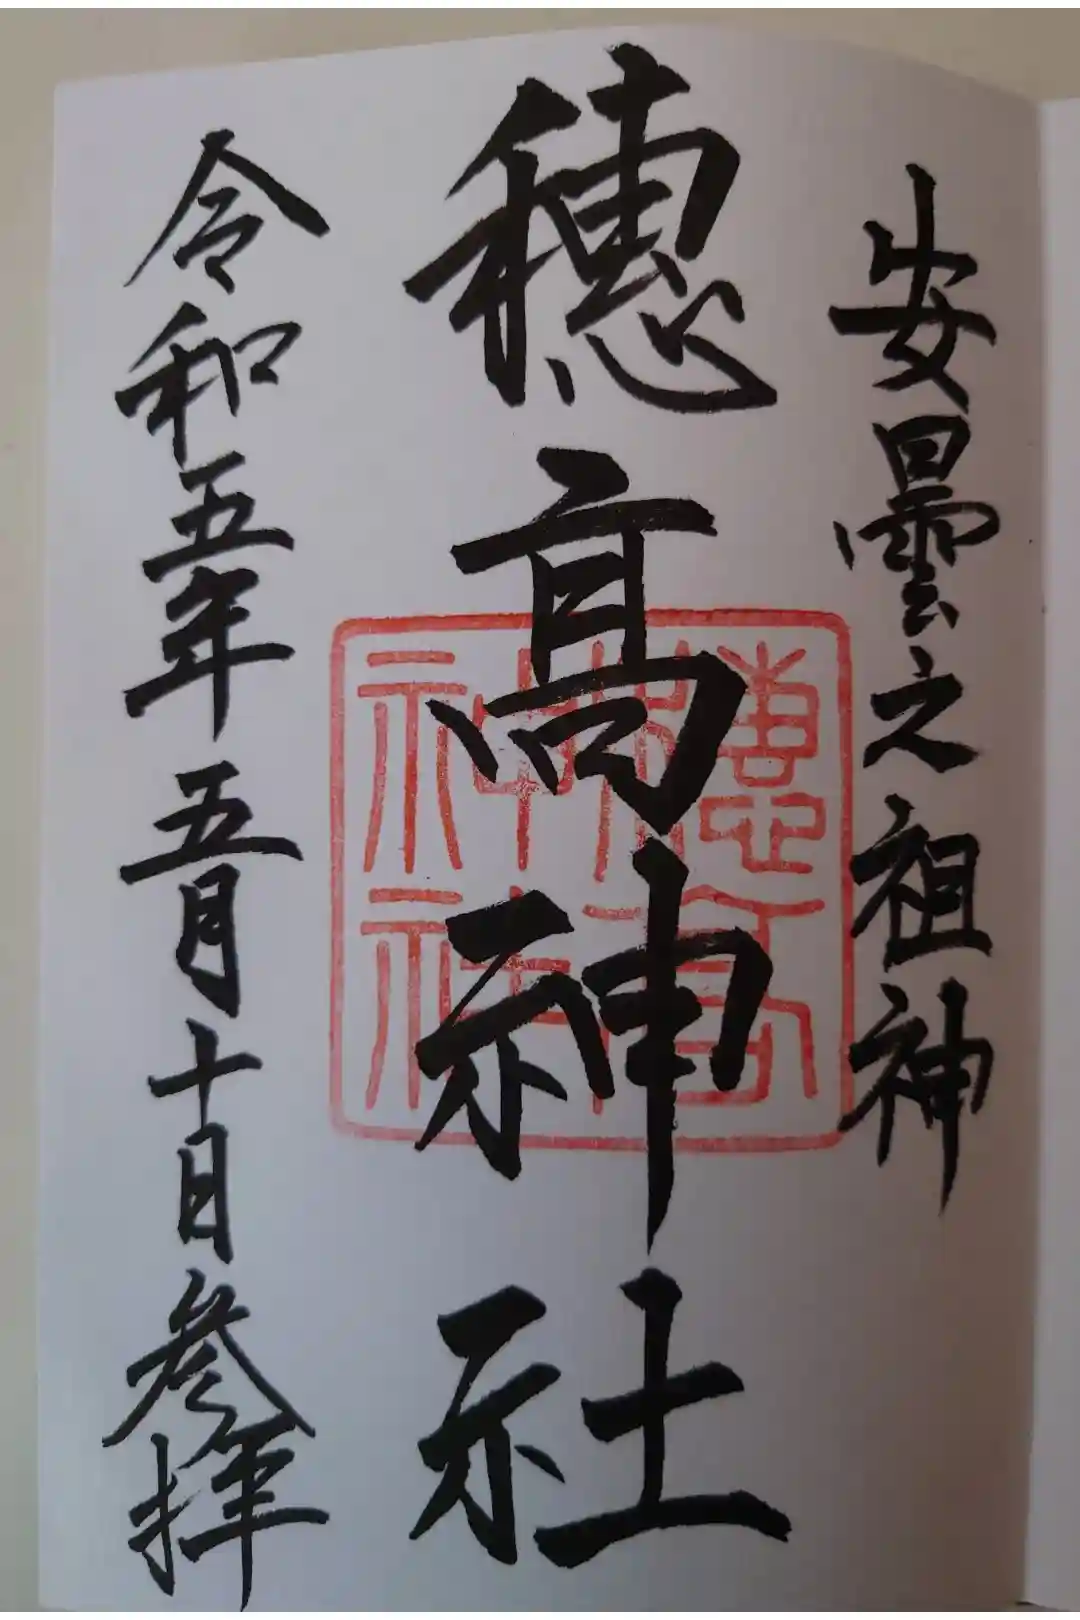 安曇之祖神
穂髙神社
穂髙神社
令和五年五月十日参拝